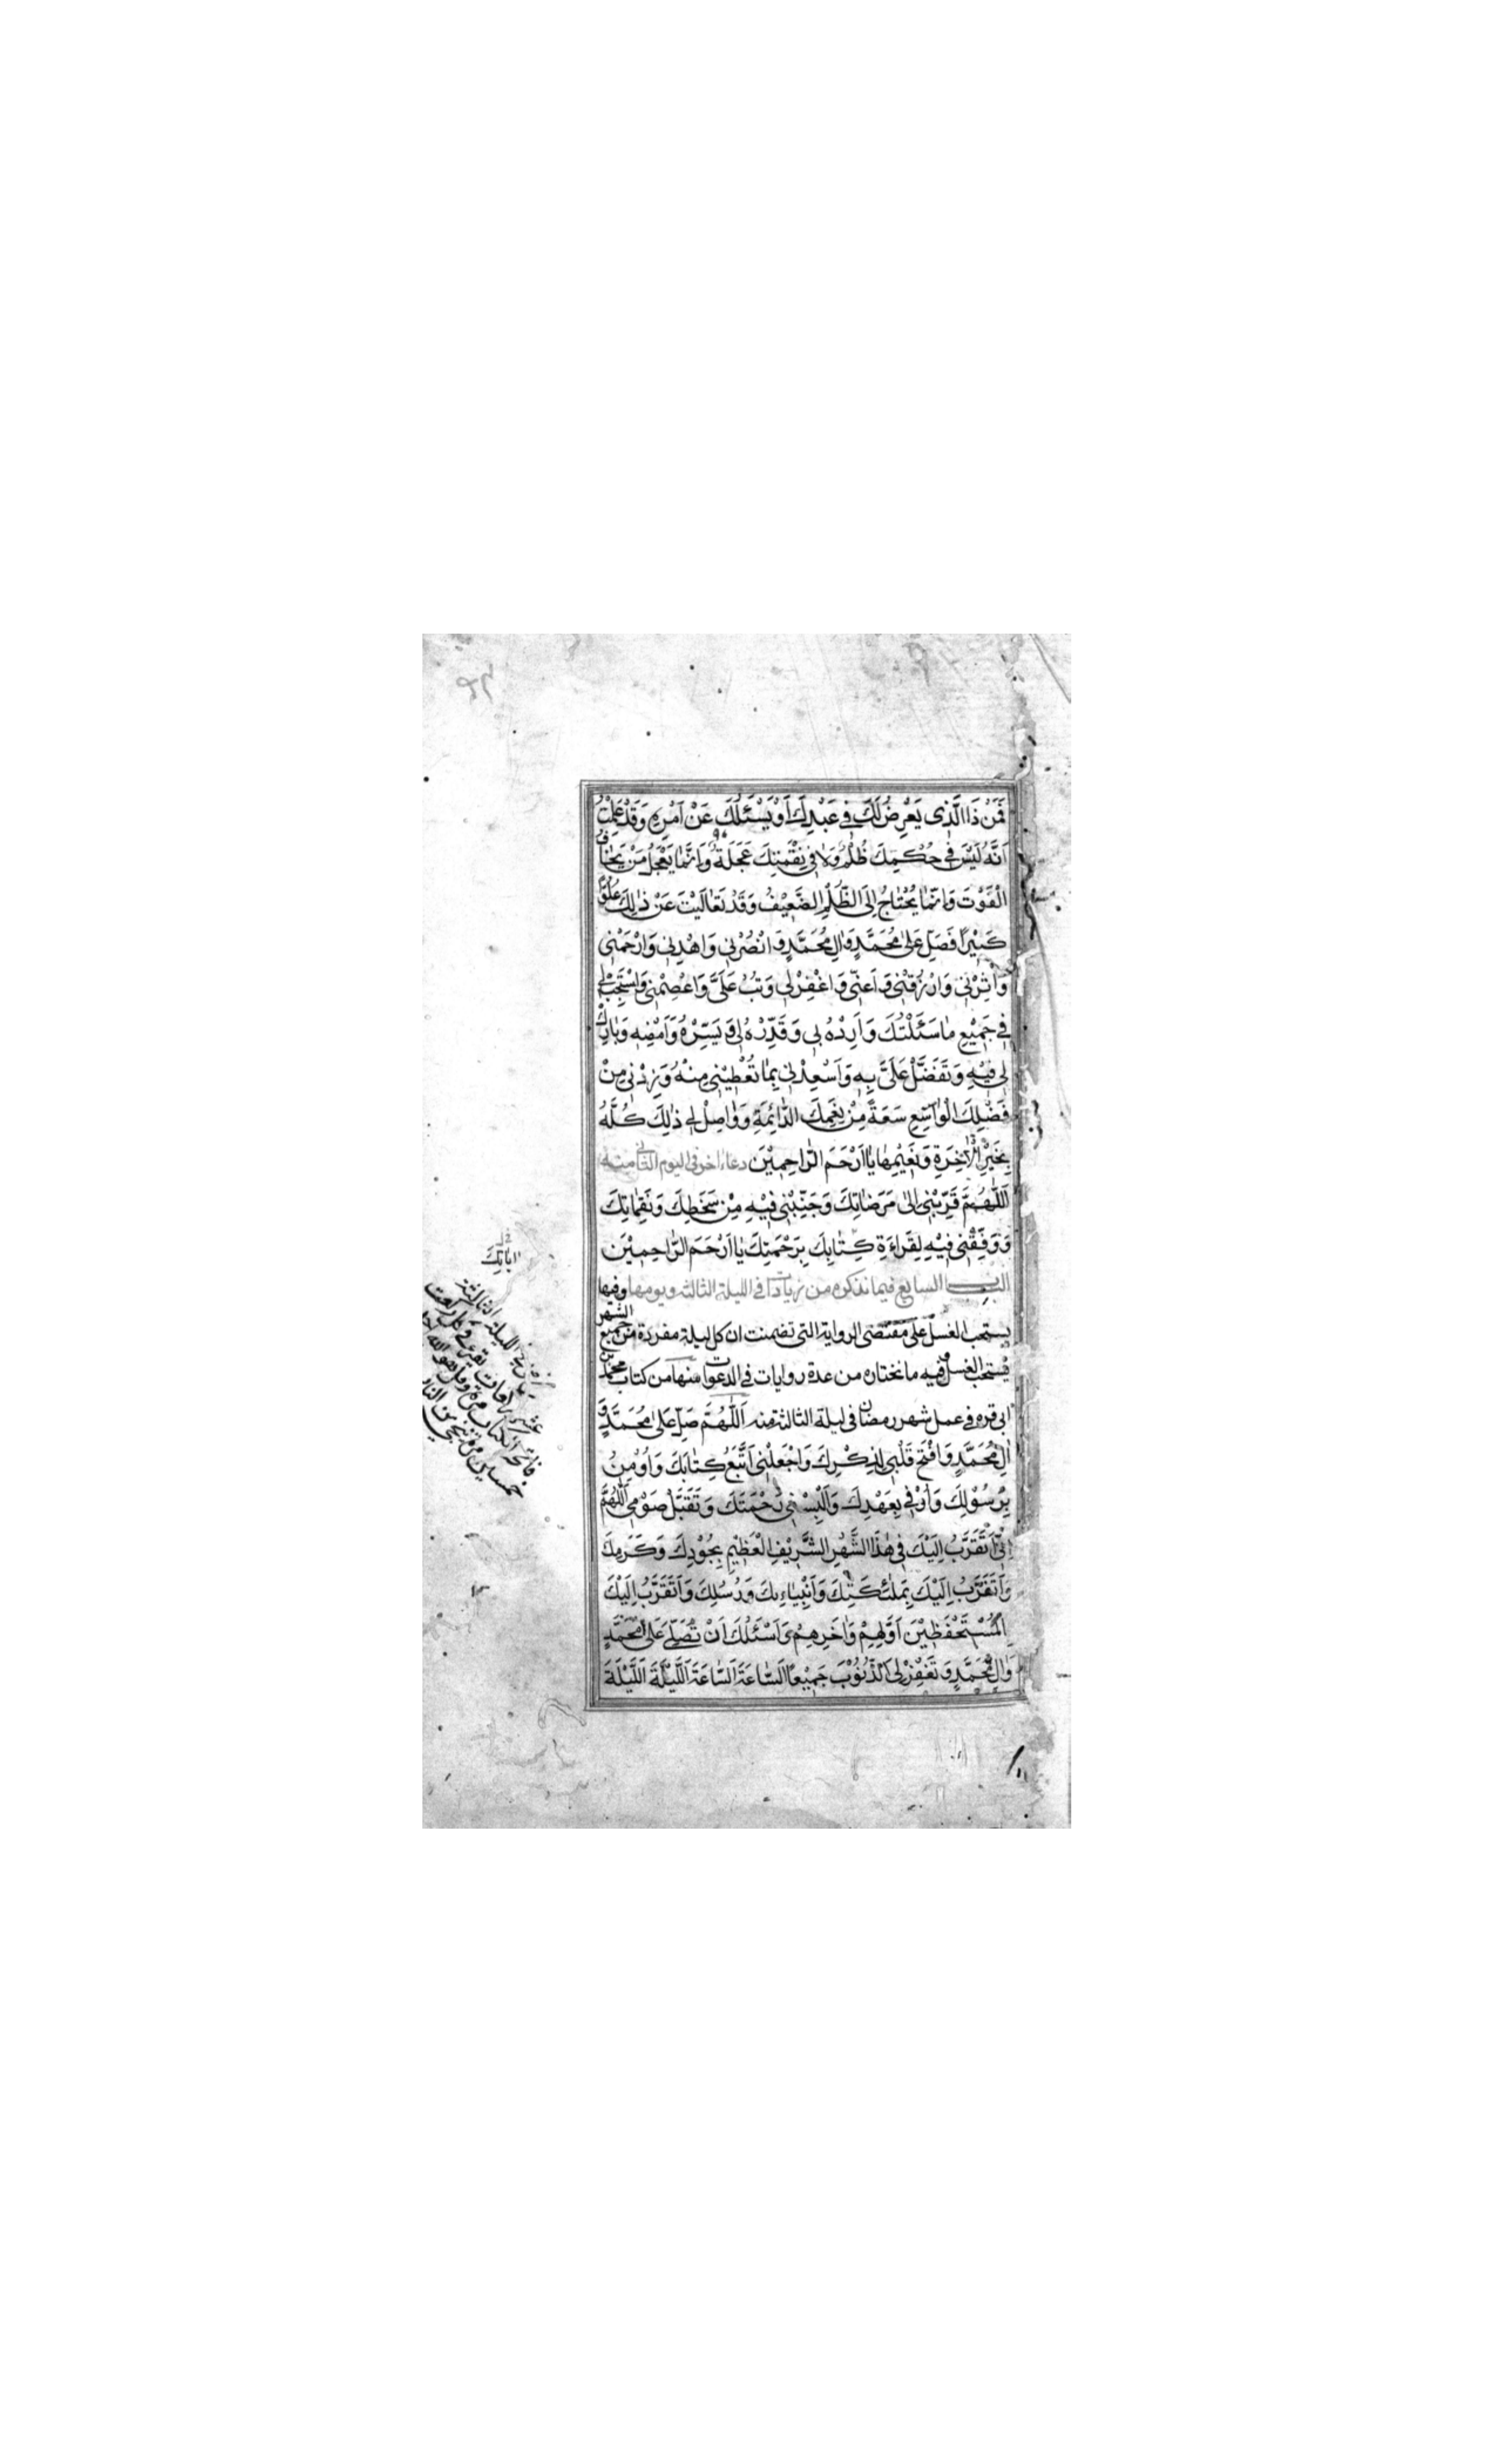 فَمَنْ ذَا الَّذِى يَعْرِضُ لَكَ فِى عَبْدِكَ اَوْ يَسْئَلُكَ عَنْ اَمْرِهِ وَقَدْ عَلِمْتُ
اَنَّهُ لَيْسَ فِى حُكْمِكَ ظُلْمٌ وَلَا فِى نِقْمَتِكَ عَجَلَةٌ وَاِنَّمَا يَعْجَلُ مَنْ يَخَافُ
الْفَوْتَ وَاِنَّمَا يَحْتَاجُ اِلَى الظُّلْمِ الضَّعِيْفُ وَقَدْ تَعَالَيْتَ عَنْ ذٰلِكَ عُلُوًّا
كَبِيْرًا فَصَلِّ عَلٰى مُحَمَّدٍ وَاٰلِ مُحَمَّدٍ وَانْصُرْنِى وَاهْدِنِى وَارْحَمْنِى
وَاٰثِرْنِى وَارْزُقْنِى وَاَعِنِّى وَاغْفِرْ لِى وَتُبْ عَلَىَّ وَاعْصِمْنِى وَاسْتَجِبْ لِى
فِى جَمِيْعِ مَا سَئَلْتُكَ وَاَرِدْهُ بِى وَقَدِّرْهُ لِى وَيَسِّرْهُ وَاَمْضِهِ وَبَارِكْ
لِى فِيْهِ وَتَفَضَّلْ عَلَىَّ بِهِ وَاَسْعِدْنِى بِمَا تُعْطِيْنِى مِنْهُ وَزِدْنِى مِنْ
فَضْلِكَ الْوَاسِعِ سَعَةً مِنْ نِعَمِكَ الدَّائِمَةِ وَوَاصِلْ لِى ذٰلِكَ كُلَّهُ
بِخَيْرِ الْاٰخِرَةِ وَنَعِيْمِهَا يَا اَرْحَمَ الرَّاحِمِيْنَ دعاء اخر فى اليوم الثانى منه
اَللّٰهُمَّ قَرِّبْنِى اِلٰى مَرْضَاتِكَ وَجَنِّبْنِى فِيْهِ مِنْ سَخَطِكَ وَنَقِمَاتِكَ
وَوَفِّقْنِى فِيْهِ لِقَرَاءَةِ كِتَابِكَ بِرَحْمَتِكَ يَا اَرْحَمَ الرَّاحِمِيْنَ
الباب السابع فيما نذكره من زيادات فى الليلة الثالثة ويومها وفيها
يستحب الغسل على مقتضى الرواية التى تضمنت ان كل ليلة مفردة من جميع الشهر
يستحب الغسل فيه مانختاره من عدة روايات فى الدعوات منها من كتاب محمد بن
ابى قره فى عمل شهر رمضان فى ليلة الثالثة منه اَللّٰهُمَّ صَلِّ عَلٰى مُحَمَّدٍ وَ
اٰلِ مُحَمَّدٍ وَافْتَحْ قَلْبِى لِذِكْرِكَ وَاجْعَلْنِى اَتَّبِعُ كِتَابَكَ وَاُوْمِنُ
بِرَسُوْلِكَ وَاُوْفِى بِعَهْدِكَ وَاَلْبِسْنِى رَحْمَتَكَ وَتَقَبَّلْ صَوْمِى اَللّٰهُمَّ
اِنِّى اَتَقَرَّبُ اِلَيْكَ فِى هٰذَا الشَّهْرِ الشَّرِيْفِ الْعَظِيْمِ بِجُوْدِكَ وَكَرَمِكَ
وَاَتَقَرَّبُ اِلَيْكَ بِمَلٰئِكَتِكَ وَاَنْبِيَاءِكَ وَرُسُلِكَ وَاَتَقَرَّبُ اِلَيْكَ
بِالْمُسْتَحْفَظِيْنَ اَوَّلِهِمْ وَاٰخِرِهِمْ وَاَسْئَلُكَ اَنْ تُصَلِّىَ عَلٰى مُحَمَّدٍ
وَاٰلِ مُحَمَّدٍ وَتَغْفِرْ لِىَ الذُّنُوْبَ جَمِيْعًا اَلسَّاعَةَ اَلسَّاعَةَ اَللَّيْلَةَ اَللَّيْلَةَ
اياتك
الليلة الثالثة
عشر ركعات تقرء فى كل ركعت
فاتحة الكتاب مرة وقل هو الله احد
خمسين مرة